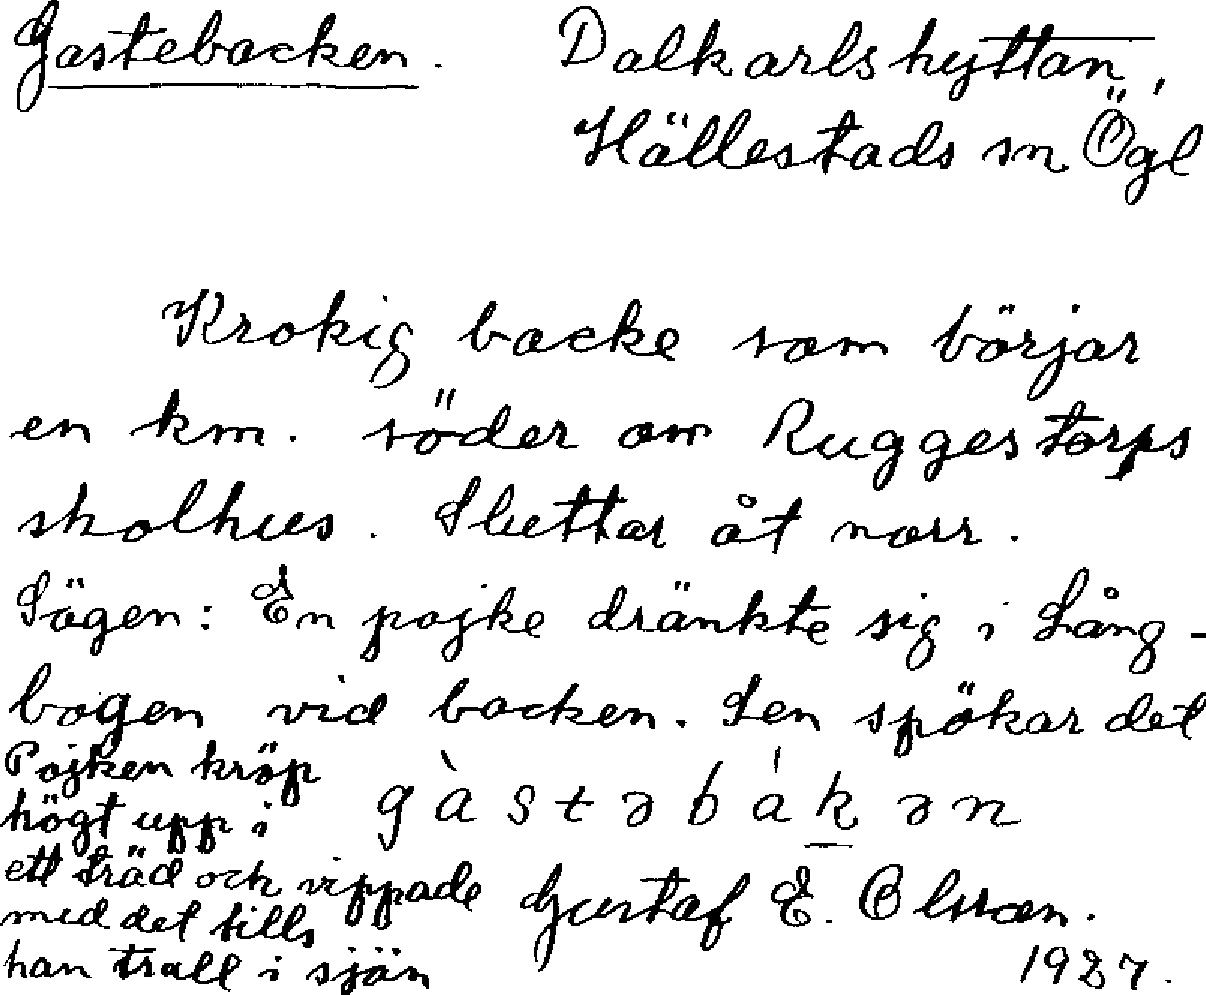 Gastebacken. Dalkarlshyttan,
Hällestads sn Ögl
Krokig backe som börjar
en km. söder om Ruggestorps
skolhus. Sluttar åt norr.
Sägen: En pojke dränkte sig i Lång-
bogen vid backen. Sen spökar det
Pojken kröp
högt upp i
ett träd och vippade
med det tills
han trall i sjön
gàstəbák̲ən
Gustaf E. Olsson.
1927.